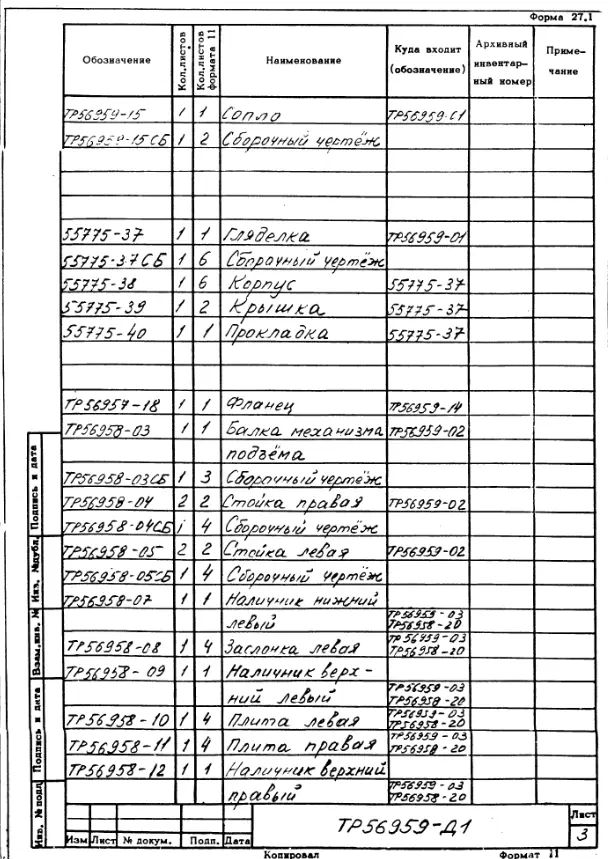 Форма 27.1
Обозначение Кол.листов Кол.листов формата 11 Наименование Куда входит (обозначение) Архивный инвентарный номер Примечание
ТР56959-15 1 1 Сопло ТР56959-С1
ТР56959-15СБ 1 2 Сборочный чертёж
55775-37 1 1 Гляделка ТР56959-01
55775-37СБ 1 6 Сборочный чертёж
55775-38 1 6 Корпус 55775-37
55775-39 1 2 Крышка 55775-37
55775-40 1 1 Прокладка 55775-37
ТР56957-18 1 1 Фланец ТР56959-14
ТР56958-03 1 1 Балка механизма ТР56959-02
подъёма
ТР56958-03СБ 1 3 Сборочный чертёж
ТР56958-04 2 2 Стойка правая ТР56959-02
ТР56958-04СБ 1 4 Сборочный чертёж
ТР56958-05 2 2 Стойка левая ТР56959-02
ТР56958-05СБ 1 4 Сборочный чертёж
ТР56958-07 1 1 Наличник нижний
левый ТР56959-03
ТР56958-20
ТР56958-08 1 4 Заслонка левая ТР56959-03
ТР56958-20
ТР56958-09 1 1 Наличник верх-
ний левый ТР56959-03
ТР56958-20
ТР56958-10 1 4 Плита левая ТР56959-03
ТР56958-20
ТР56958-11 1 4 Плита правая ТР56959-03
ТР56958-20
ТР56958-12 1 1 Наличник верхний
правый ТР56959-03
ТР56958-20
Подпись и дата
Инв. №дубл.
Взам.инв. №
Подпись и дата
Инв. №подл
Изм Лист № докум. Подп. Дата
ТР56959-Д1
Лист
3
Копировал Формат 11